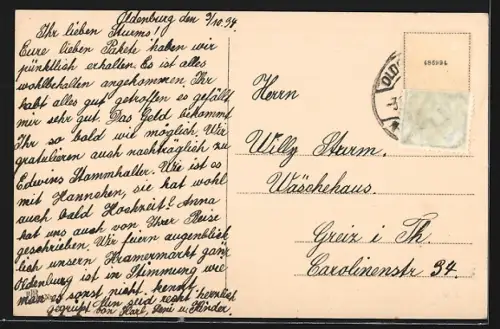 Oldenburg den 3/10.34.
Ihr lieben Sturms!
Eure lieben Pakete haben wir
pünktlich erhalten. Es ist alles
wohlbehalten angekommen. Ihr
habt alles gut getroffen es gefällt
mir sehr gut. Das Geld bekommt
Ihr so bald wie möglich. Wir
gratulieren auch nachträglich zu
Edwins Stammhalter. Wie ist es
mit Hannchen, sie hat wohl
auch bald Hochzeit? Anna
hat uns auch von Ihrer Reise
geschrieben. Wir feiern augenblick
lich unsern Kramermarkt ganz
Oldenburg ist in Stimmung wie
man es sonst nicht kennt.
Nun seid recht herzlich
gegrüßt von Karl, u. Kinder.
486994
OLD
Herrn
Willy Sturm.
Wäschehaus.
Greiz i Th.
Carolinenstr 34.